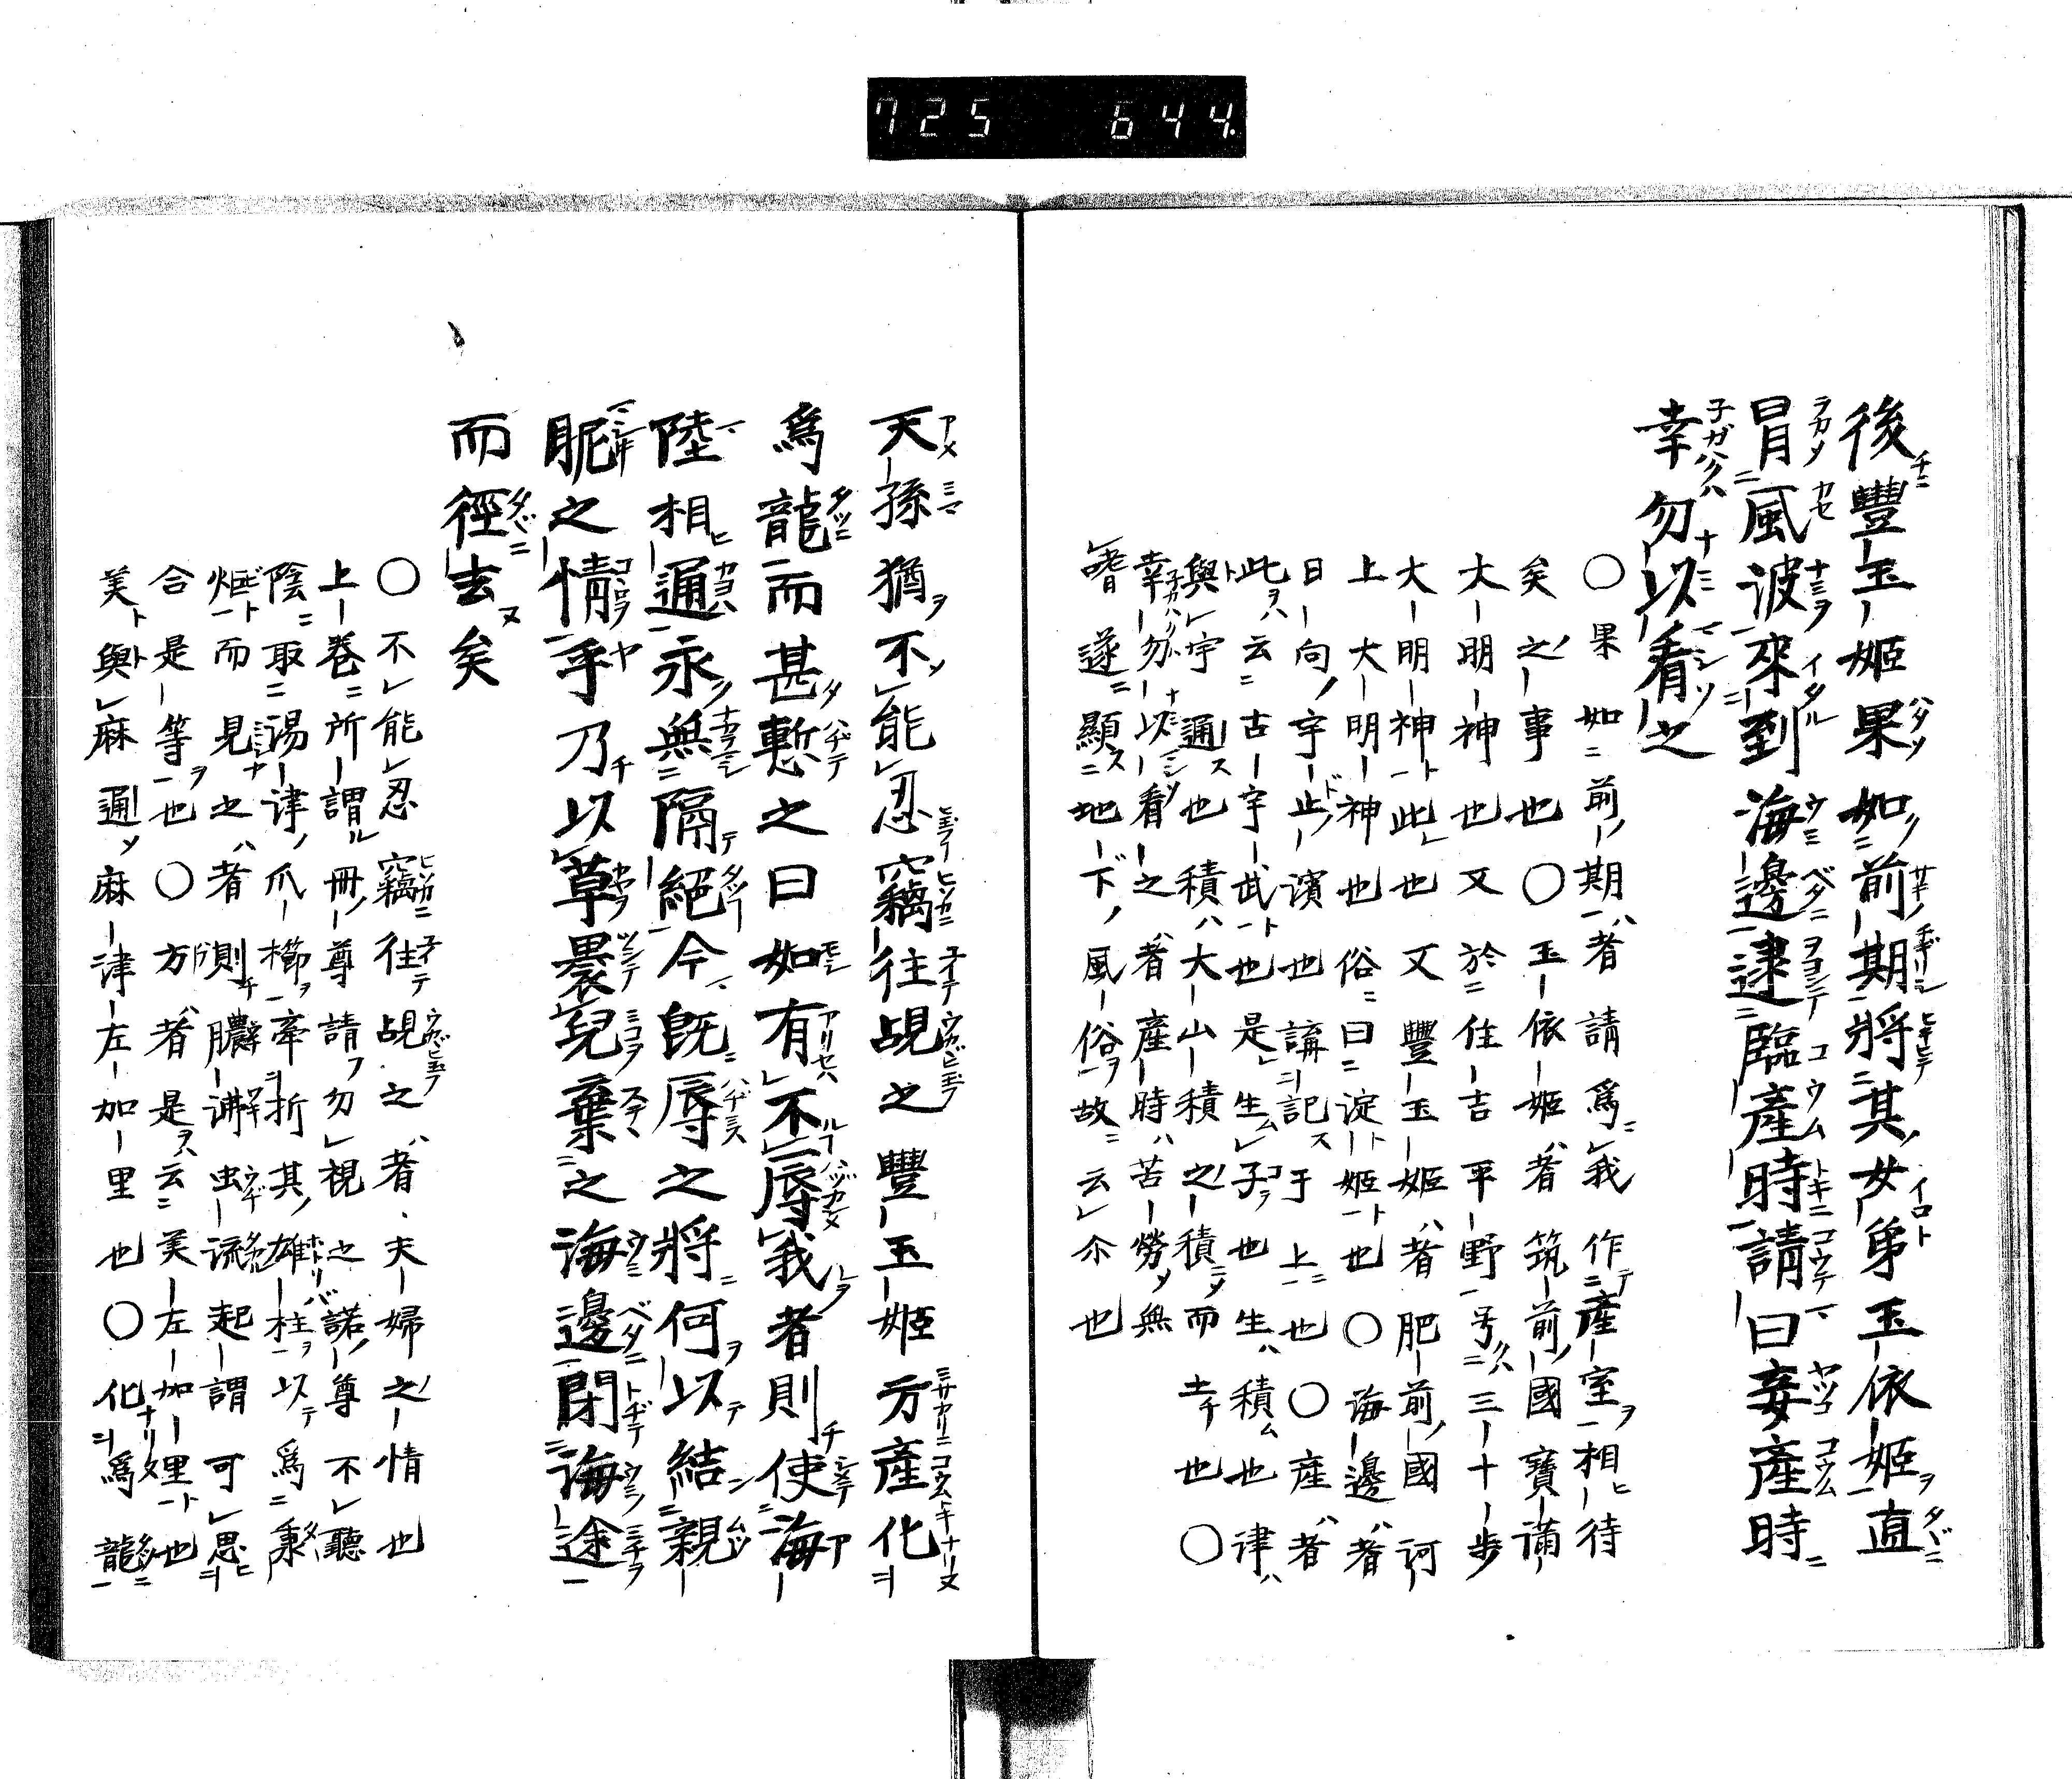 725 644
後豐玉姬果如前期將其女弟玉依姬直
冒風波來到海邊逮臨產時請曰妾產時
幸勿以看之
〇果如前期者請爲我作產室相待
矣之事也〇玉依姬者筑前國寶滿
大明神也又於住吉平野号三十歩
大明神此也又豐玉姬者肥前國河
上大明神也俗曰淀姬也〇海邊者
日向宇止濱也講記于上也〇產者
此云古宇武也是生子也生積也律
與宇通也積大山積之積而 也〇
幸勿以看之者產時苦勞無
遂顯地下風俗故云尒也
天孫猶不能忍竊往覘之豐玉姬方產化
爲龍而甚慙之曰如有不辱我者則使海
陸相通永無隔絕今既辱之將何以結親
昵之情乎乃以草褁兒棄之海邊閉海途
而徑去矣
〇不能忍竊往覘之者夫婦之情也
上卷所謂冊尊請勿視之諾尊不聽
陰取湯津爪櫛牽折其雄柱以爲秉
炬而見之者則膿沸虫流起謂可思
合是等也〇方者是云美左加里也
美與麻通麻津左加里也〇化爲龍